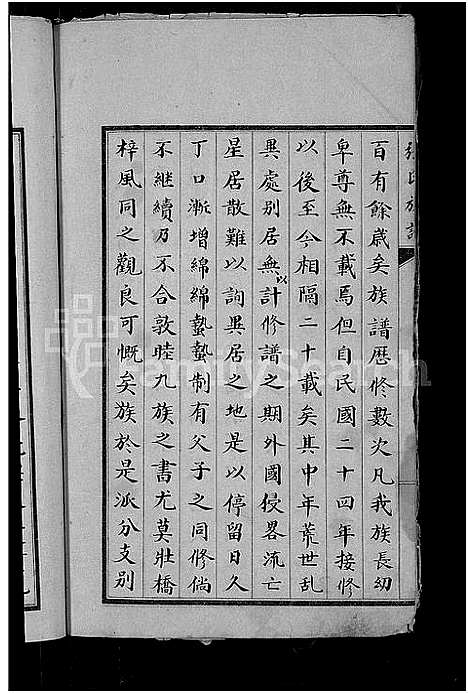 百有餘歲矣族譜歷修數次凡我族長幼
卑尊無不載焉但自民國二十四年接修
以後至今相隔二十載矣其中年荒世亂
異處別居無以計修譜之期外國侵畧流亡
星居散難以詢異居之地是以停留日久
丁口漸增綿綿蟄蟄制有父子之同修倘
不繼續乃不合敦睦九族之書尤莫壯橋
梓風同之觀良可慨矣族於是派分支別
FamilySearch